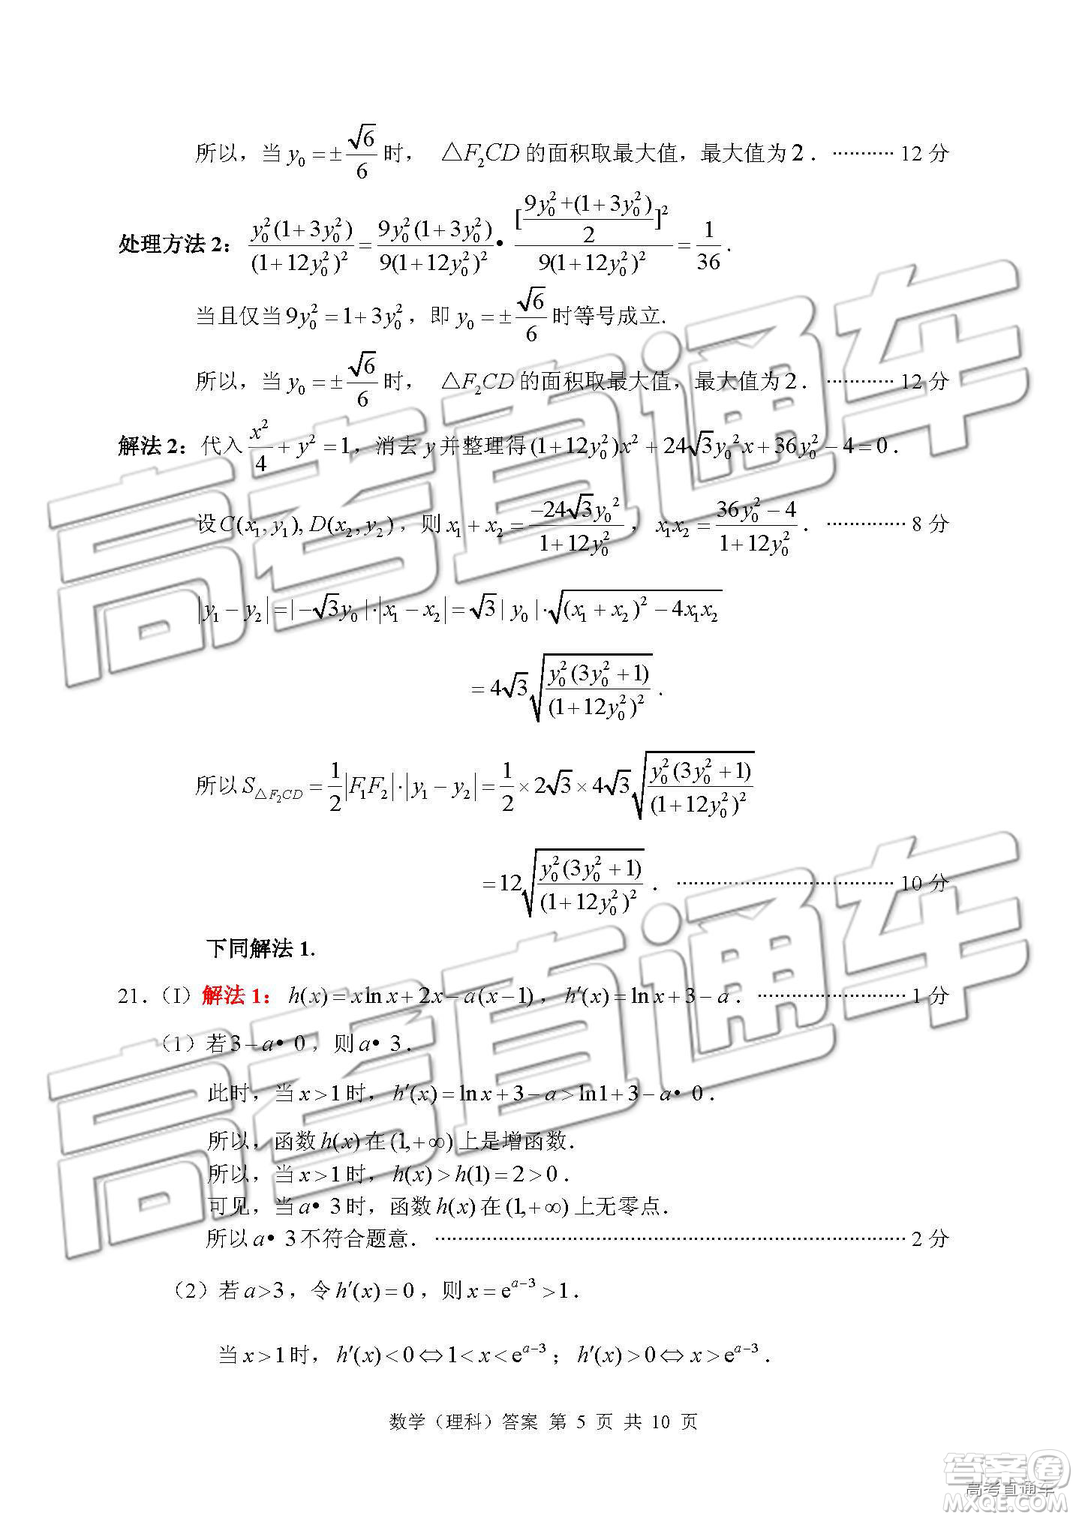 所以，当 y₀ = ±√6/6 时， △F₂CD 的面积取最大值，最大值为 2．··········· 12 分
处理方法 2： y₀²(1+3y₀²)/(1+12y₀²)² = 9y₀²(1+3y₀²)/9(1+12y₀²)² • [(9y₀²+(1+3y₀²))/2]²/9(1+12y₀²)² = 1/36．
当且仅当 9y₀² = 1+3y₀²，即 y₀ = ±√6/6 时等号成立.
所以，当 y₀ = ±√6/6 时， △F₂CD 的面积取最大值，最大值为 2．············ 12 分
解法 2：代入 x²/4 + y² = 1，消去 y 并整理得 (1+12y₀²)x² + 24√3y₀²x + 36y₀² − 4 = 0．
设 C(x₁, y₁), D(x₂, y₂)，则 x₁ + x₂ = −24√3y₀²/(1+12y₀²)， x₁x₂ = (36y₀² − 4)/(1+12y₀²)．·············· 8 分
|y₁ − y₂| = |−√3y₀|·|x₁ − x₂| = √3 | y₀ |·√((x₁ + x₂)² − 4x₁x₂)
= 4√3√(y₀²(3y₀² + 1)/(1+12y₀²)²)．
所以 S△F₂CD = 1/2|F₁F₂|·|y₁ − y₂| = 1/2 × 2√3 × 4√3√(y₀²(3y₀² + 1)/(1+12y₀²)²)
= 12√(y₀²(3y₀² + 1)/(1+12y₀²)²)．······································ 10 分
下同解法 1.
21．（I）解法 1： h(x) = x ln x + 2x − a(x − 1)， h′(x) = ln x + 3 − a．·························· 1 分
（1）若 3 − a• 0，则 a• 3．
此时，当 x > 1 时， h′(x) = ln x + 3 − a > ln1 + 3 − a• 0．
所以，函数 h(x) 在 (1, +∞) 上是增函数．
所以，当 x > 1 时， h(x) > h(1) = 2 > 0．
可见，当 a• 3 时，函数 h(x) 在 (1, +∞) 上无零点．
所以 a• 3 不符合题意．··················································································· 2 分
（2）若 a > 3，令 h′(x) = 0，则 x = eᵃ⁻³ > 1．
当 x > 1 时， h′(x) < 0 ⇔ 1 < x < eᵃ⁻³； h′(x) > 0 ⇔ x > eᵃ⁻³．
数学（理科）答案 第 5 页 共 10 页
高考直通车
高考直通车
答案圈
高考直通车
MXQE.COM